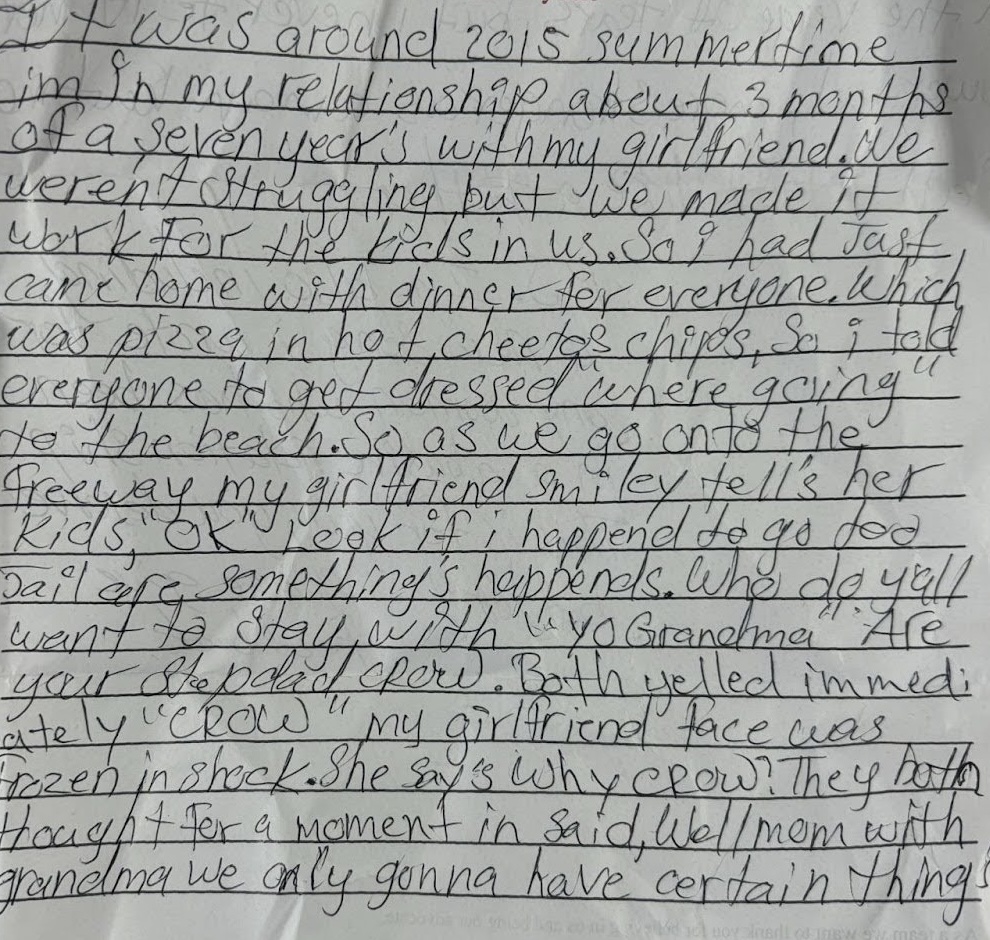 It was around 2015 summertime
im in my relationship about 3 months
of a seven year's with my girlfriend. We
weren't struggling but we made it
work for the kids in us. So i had Just
came home with dinner for everyone. Which
was pizza in hot cheetos chips, So i told
everyone to get dressed "where going"
to the beach. So as we go onto the
freeway my girlfriend smiley tell's her
kids, "OK" Look if i happend to go too
Jail are something's happends. Who do yall
want to stay with "yo Grandma" Are
your stepdad crow. Both yelled immedi
ately "CROW" my girlfriend face was
frozen in shock. She say's Why crow? They both
thought for a moment in said, Well mom with
grandma we only gonna have certain things